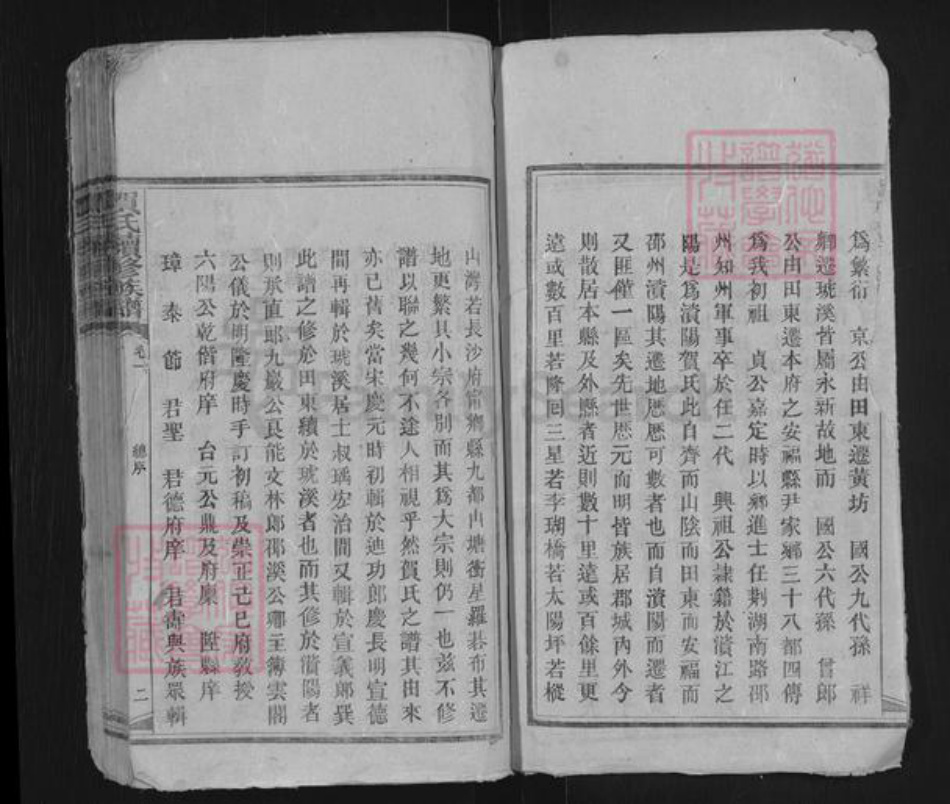 爲繁衍　京公由田東遷黃坊　國公九代孫　祥
卿遷琥溪皆屬永新故地而　國公六代孫　曾郎
公由田東遷本府之安福縣尹家鄉三十八都四傳
爲我初祖　貞公嘉定時以鄉進士任荆湖南路邵
州知州軍事卒於任二代　興祖公隷籍於濱江之
陽是爲濱陽賀氏此自齊而山陰而田東而安福而
邵州濱陽其遷地歷歷可數者也而自濱陽而遷者
又匪僅一區矣先世歷元而明皆族居郡城內外今
則散居本縣及外縣者近則數十里遠或百餘里更
遠或數百里若隆回三星若李瑚橋若太陽坪若樅
山灣若長沙府甯鄉縣九都山塘衝星羅碁布其遷
地更繁其小宗各別而其爲大宗則仍一也茲不修
譜以聯之幾何不途人相視乎然賀氏之譜其由來
亦已舊矣當宋慶元時初輯於迪功郎慶長明宣德
間再輯於琥溪居士叔瑀宏治間又輯於宣義郎巽
此譜之修於田東續於琥溪者也而其修於濱陽者
則承直郎九巖公良能文林郎邵溪公卿主簿雲閣
公儀於明隆慶時手訂初稿及崇正己巳府敎授
六陽公乾偕府庠　台元公鼎及府廩　陞縣庠
璋　泰　節　君聖　君德府庠　君壽與族眾輯
賀氏續修族譜
卷一
總序
二